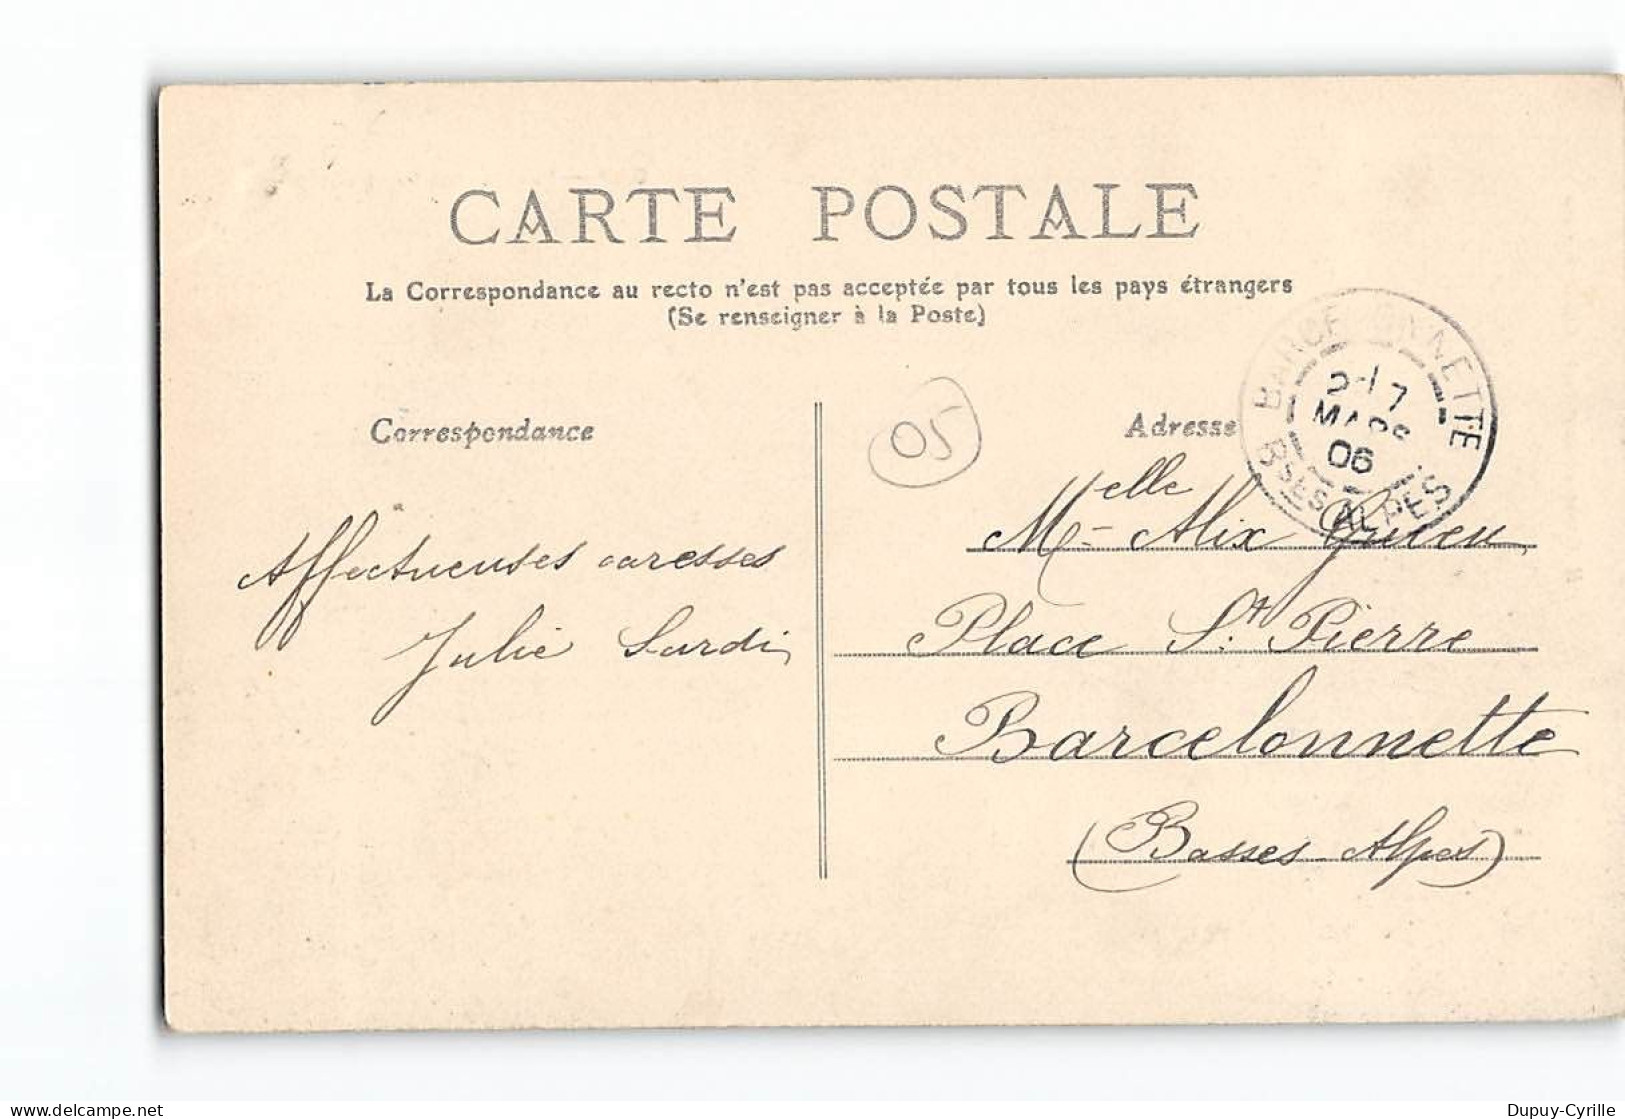 CARTE POSTALE
La Correspondance au recto n'est pas acceptée par tous les pays étrangers
(Se renseigner à la Poste)
Correspondance
05
Adresse
BARCELONNETTE
MARS
06
BSES ALPES
Affectueuses caresses
Julie Sardi
Melle Alix
Place St. Pierre
Barcelonnette
(Basses-Alpes)
www.delcampe.net
Dupuy-Cyrille